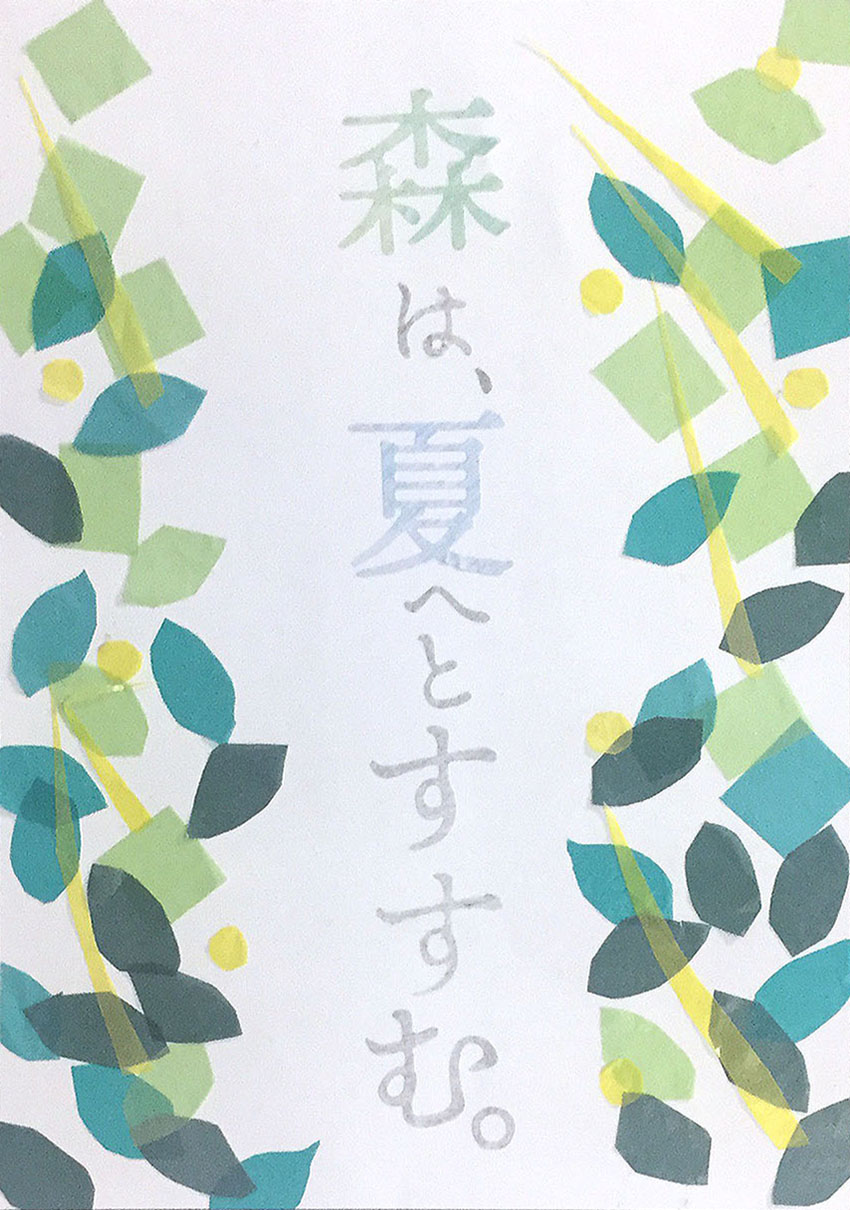 森は、夏へとすすむ。